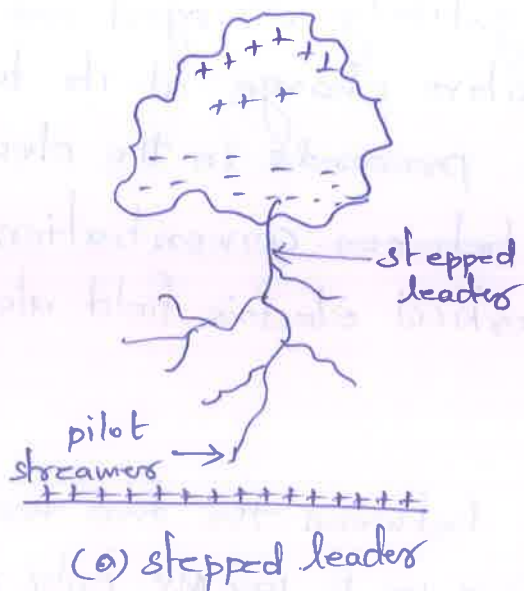 + + + + + +
+ + +
- - -
- - - - - -
- - - - -
stepped
leader
pilot
streamer
+ + + + + + + + + + + + + + +
(a) stepped leader